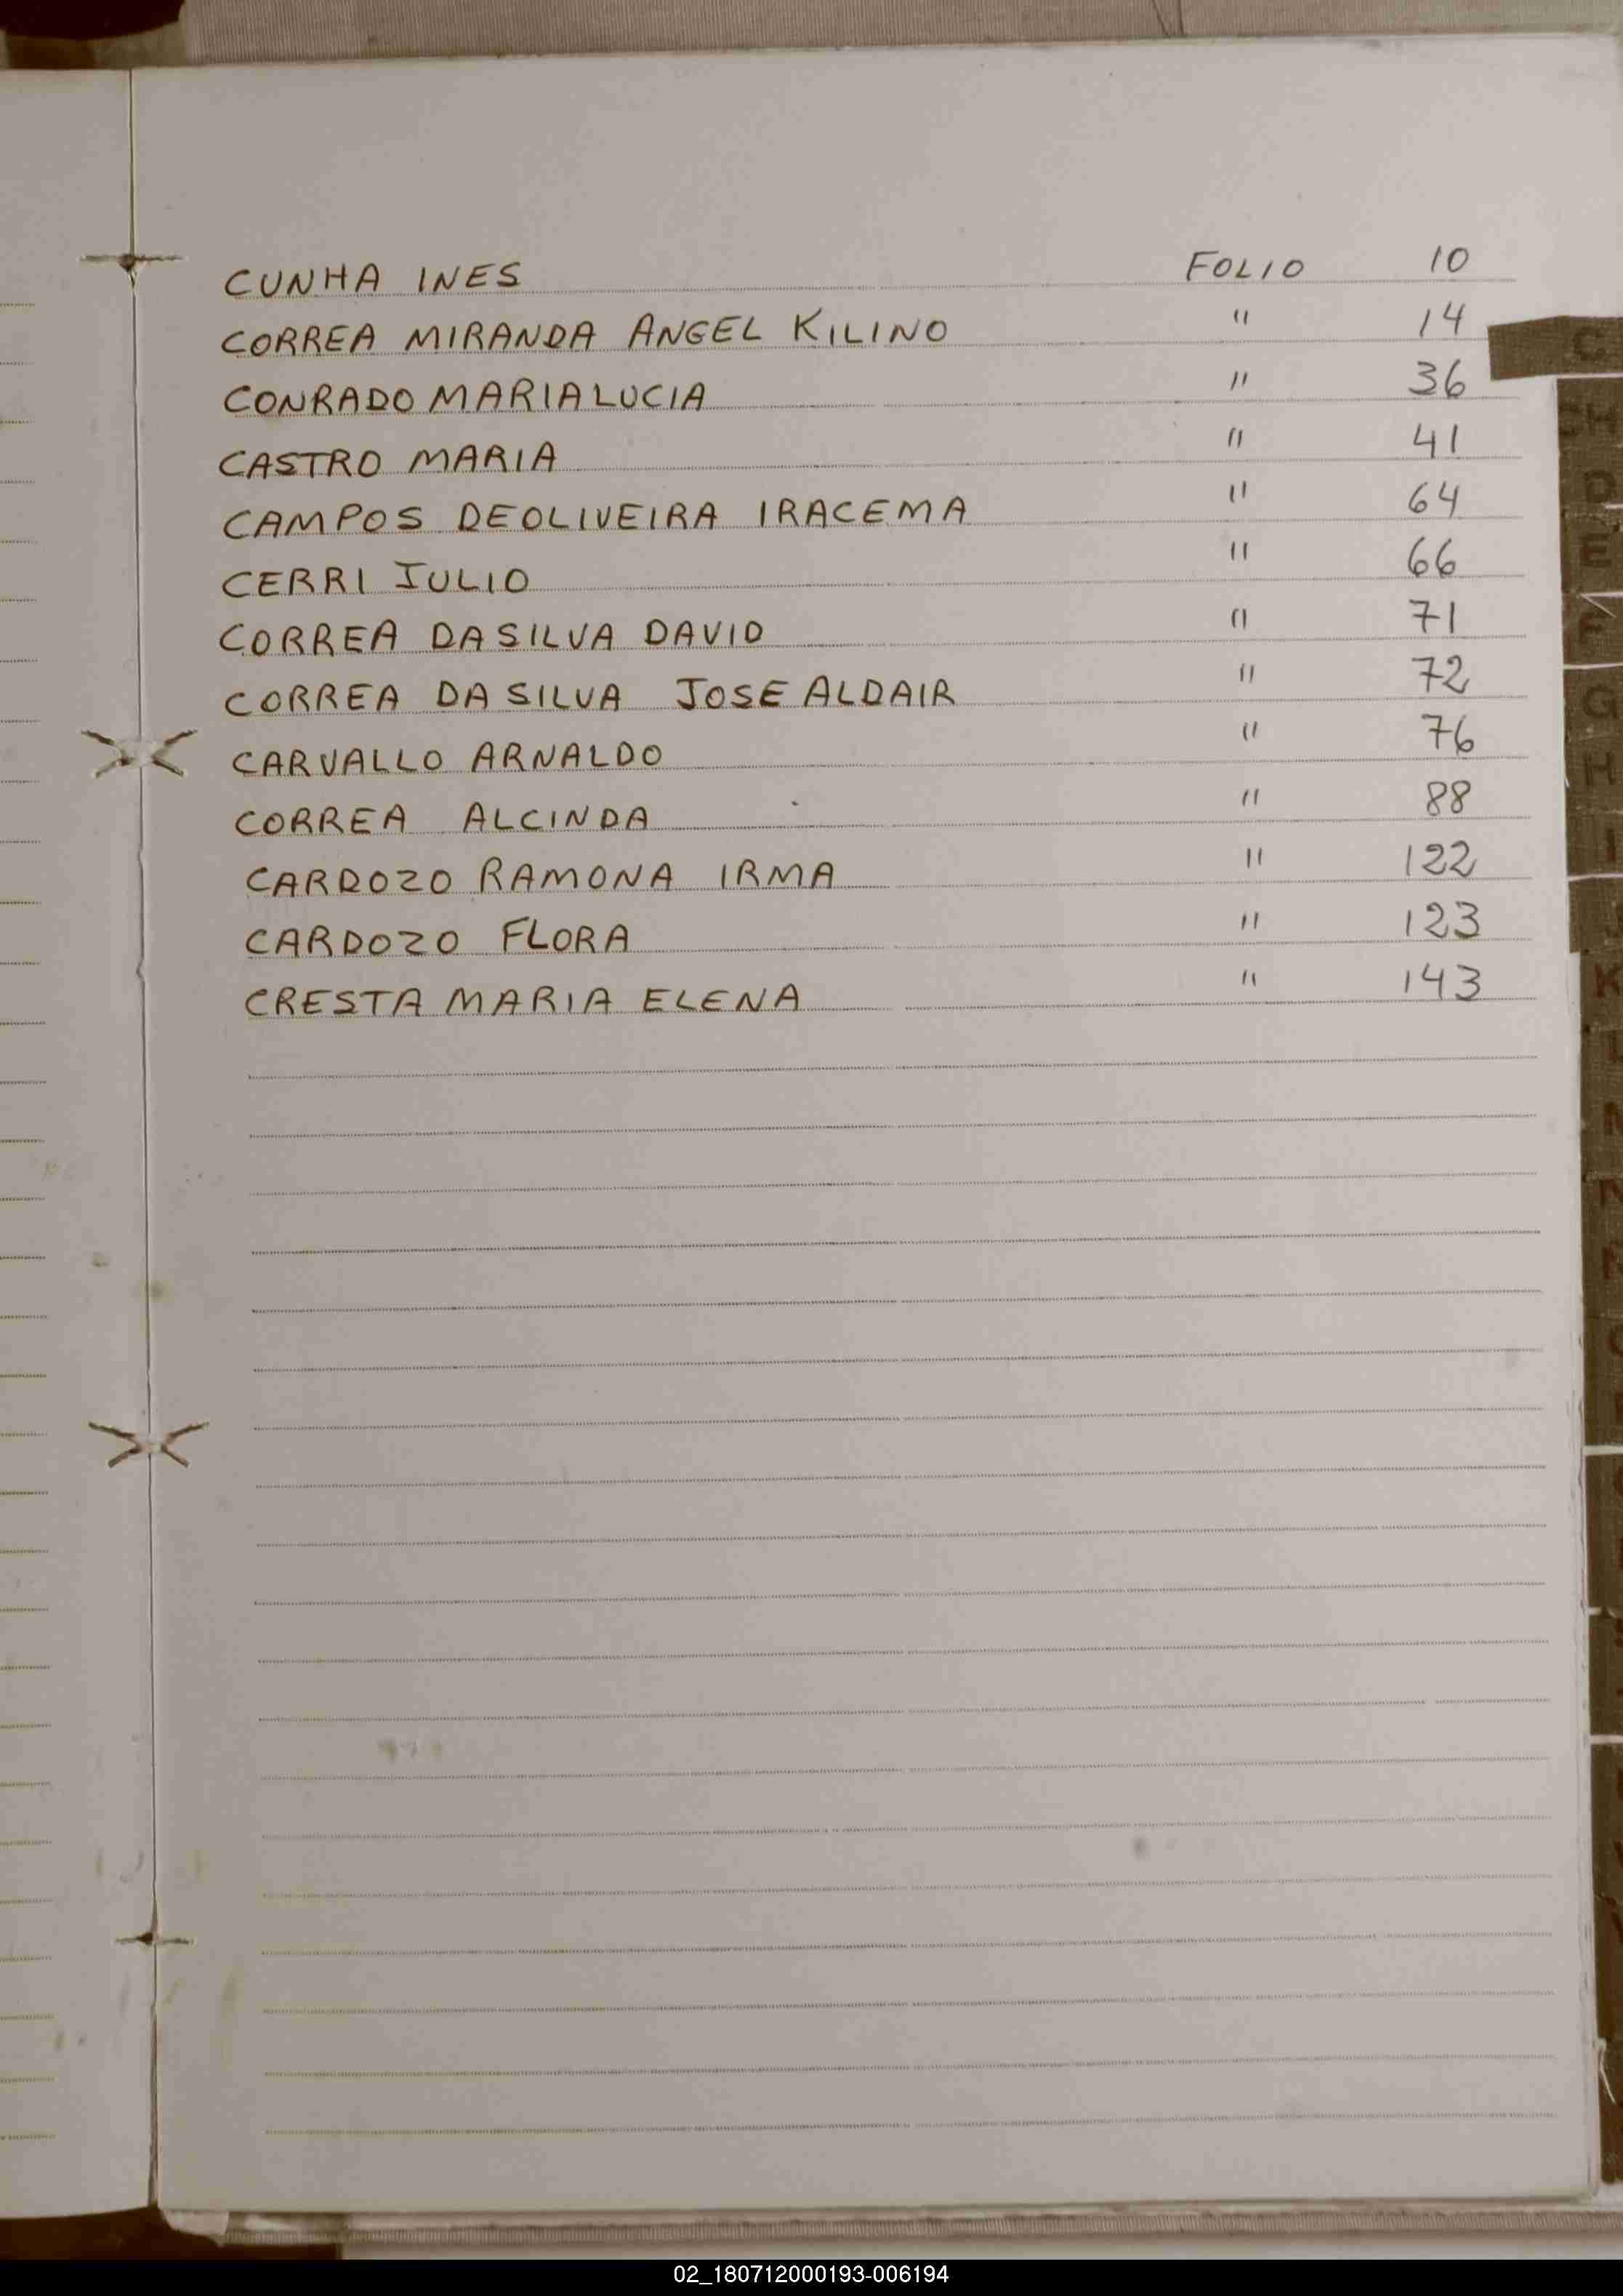 CUNHA INES FOLIO 10
CORREA MIRANDA ANGEL KILINO " 14
CONRADO MARIA LUCIA " 36
CASTRO MARIA " 41
CAMPOS DE OLIVEIRA IRACEMA " 64
CERRI JULIO " 66
CORREA DA SILVA DAVID " 71
CORREA DA SILVA JOSE ALDAIR " 72
CARVALLO ARNALDO " 76
CORREA ALCINDA " 88
CARDOZO RAMONA IRMA " 122
CARDOZO FLORA " 123
CRESTA MARIA ELENA " 143
C
CH
D
E
F
G
H
I
K
02_180712000193-006194